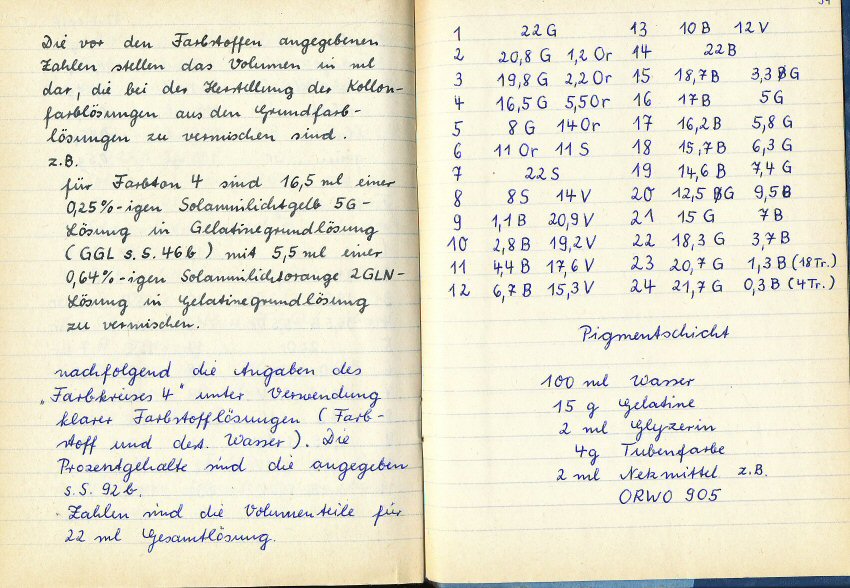 Die vor den Farbstoffen angegebenen
Zahlen stellen das Volumen in ml
dar, die bei der Herstellung der Kollon-
farblösungen aus den Grundfarb-
lösungen zu vermischen sind.
z.B.
für Farbton 4 sind 16,5 ml einer
0,25%-igen Solaminlichtgelb 5G-
Lösung in Gelatinegrundlösung
(GGL s. S. 46b) mit 5,5 ml einer
0,64%-igen Solaminlichtorange 2GLN-
Lösung in Gelatinegrundlösung
zu vermischen.
nachfolgend die Angaben des
„Farbkreises 4" unter Verwendung
klarer Farbstofflösungen (Farb-
stoff und dest. Wasser). Die
Prozentgehalte sind die angegeben
s. S. 92b.
Zahlen sind die Volumenteile für
22 ml Gesamtlösung.
1 22 G
2 20,8 G 1,2 Or
3 19,8 G 2,2 Or
4 16,5 G 5,5 Or
5 8 G 14 Or
6 11 Or 11 S
7 22 S
8 8 S 14 V
9 1,1 B 20,9 V
10 2,8 B 19,2 V
11 4,4 B 17,6 V
12 6,7 B 15,3 V
13 10 B 12 V
14 22 B
15 18,7 B 3,3 G
16 17 B 5 G
17 16,2 B 5,8 G
18 15,7 B 6,3 G
19 14,6 B 7,4 G
20 12,5 G 9,5 B
21 15 G 7 B
22 18,3 G 3,7 B
23 20,7 G 1,3 B (18 Tr.)
24 21,7 G 0,3 B (4 Tr.)
Pigmentschicht
100 ml Wasser
15 g Gelatine
2 ml Glyzerin
4 g Tubenfarbe
2 ml Netzmittel z.B.
ORWO 905